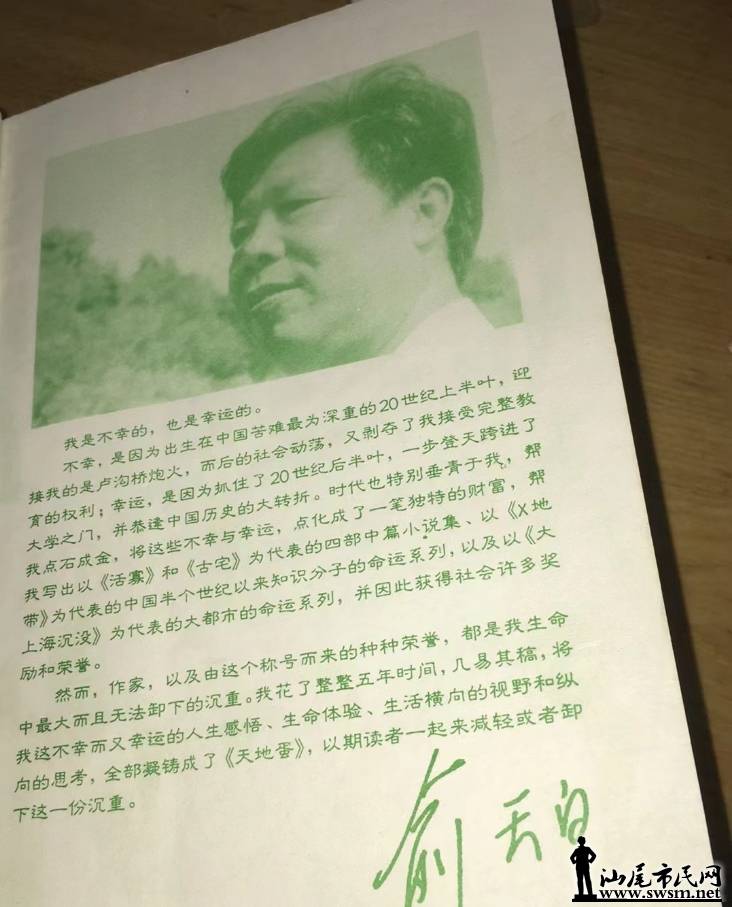 我是不幸的，也是幸运的。
不幸，是因为出生在中国苦难最为深重的20世纪上半叶，迎
接我的是卢沟桥炮火，而后的社会动荡，又剥夺了我接受完整教
育的权利；幸运，是因为抓住了20世纪后半叶，一步登天跨进了
大学之门，并恭逢中国历史的大转折。时代也特别垂青于我，帮
我点石成金，将这些不幸与幸运，点化成了一笔独特的财富，帮
我写出以《活寡》和《古宅》为代表的四部中篇小说集、以《X地
带》为代表的中国半个世纪以来知识分子的命运系列，以及以《大
上海沉没》为代表的大都市的命运系列，并因此获得社会许多奖
励和荣誉。
然而，作家，以及由这个称号而来的种种荣誉，都是我生命
中最大而且无法卸下的沉重。我花了整整五年时间，几易其稿，将
我这不幸而又幸运的人生感悟、生命体验、生活横向的视野和纵
向的思考，全部凝铸成了《天地蛋》，以期读者一起来减轻或者卸
下这一份沉重。
俞天白
汕尾市民网
www.swsm.net